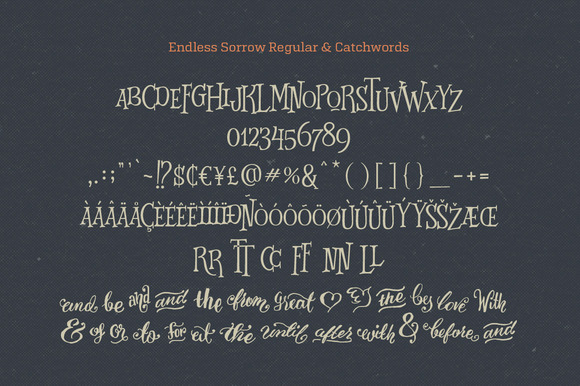 Endless Sorrow Regular & Catchwords
ABCDEFGHIJKLMNOPQRSTUVWXYZ
0123456789
,.:;"'`~!?$¢€¥£@#%&^*()[]{}_-+=
ÀÁÂÄÅÇÈÉÊËÌÍÎÏÐÑÒÓÔÕÖØÙÚÛÜÝŸŠŠŽÆŒ
RR TT CC FF NN LL
and be and and the from great the by love With
& of or to for at the until after with & before and